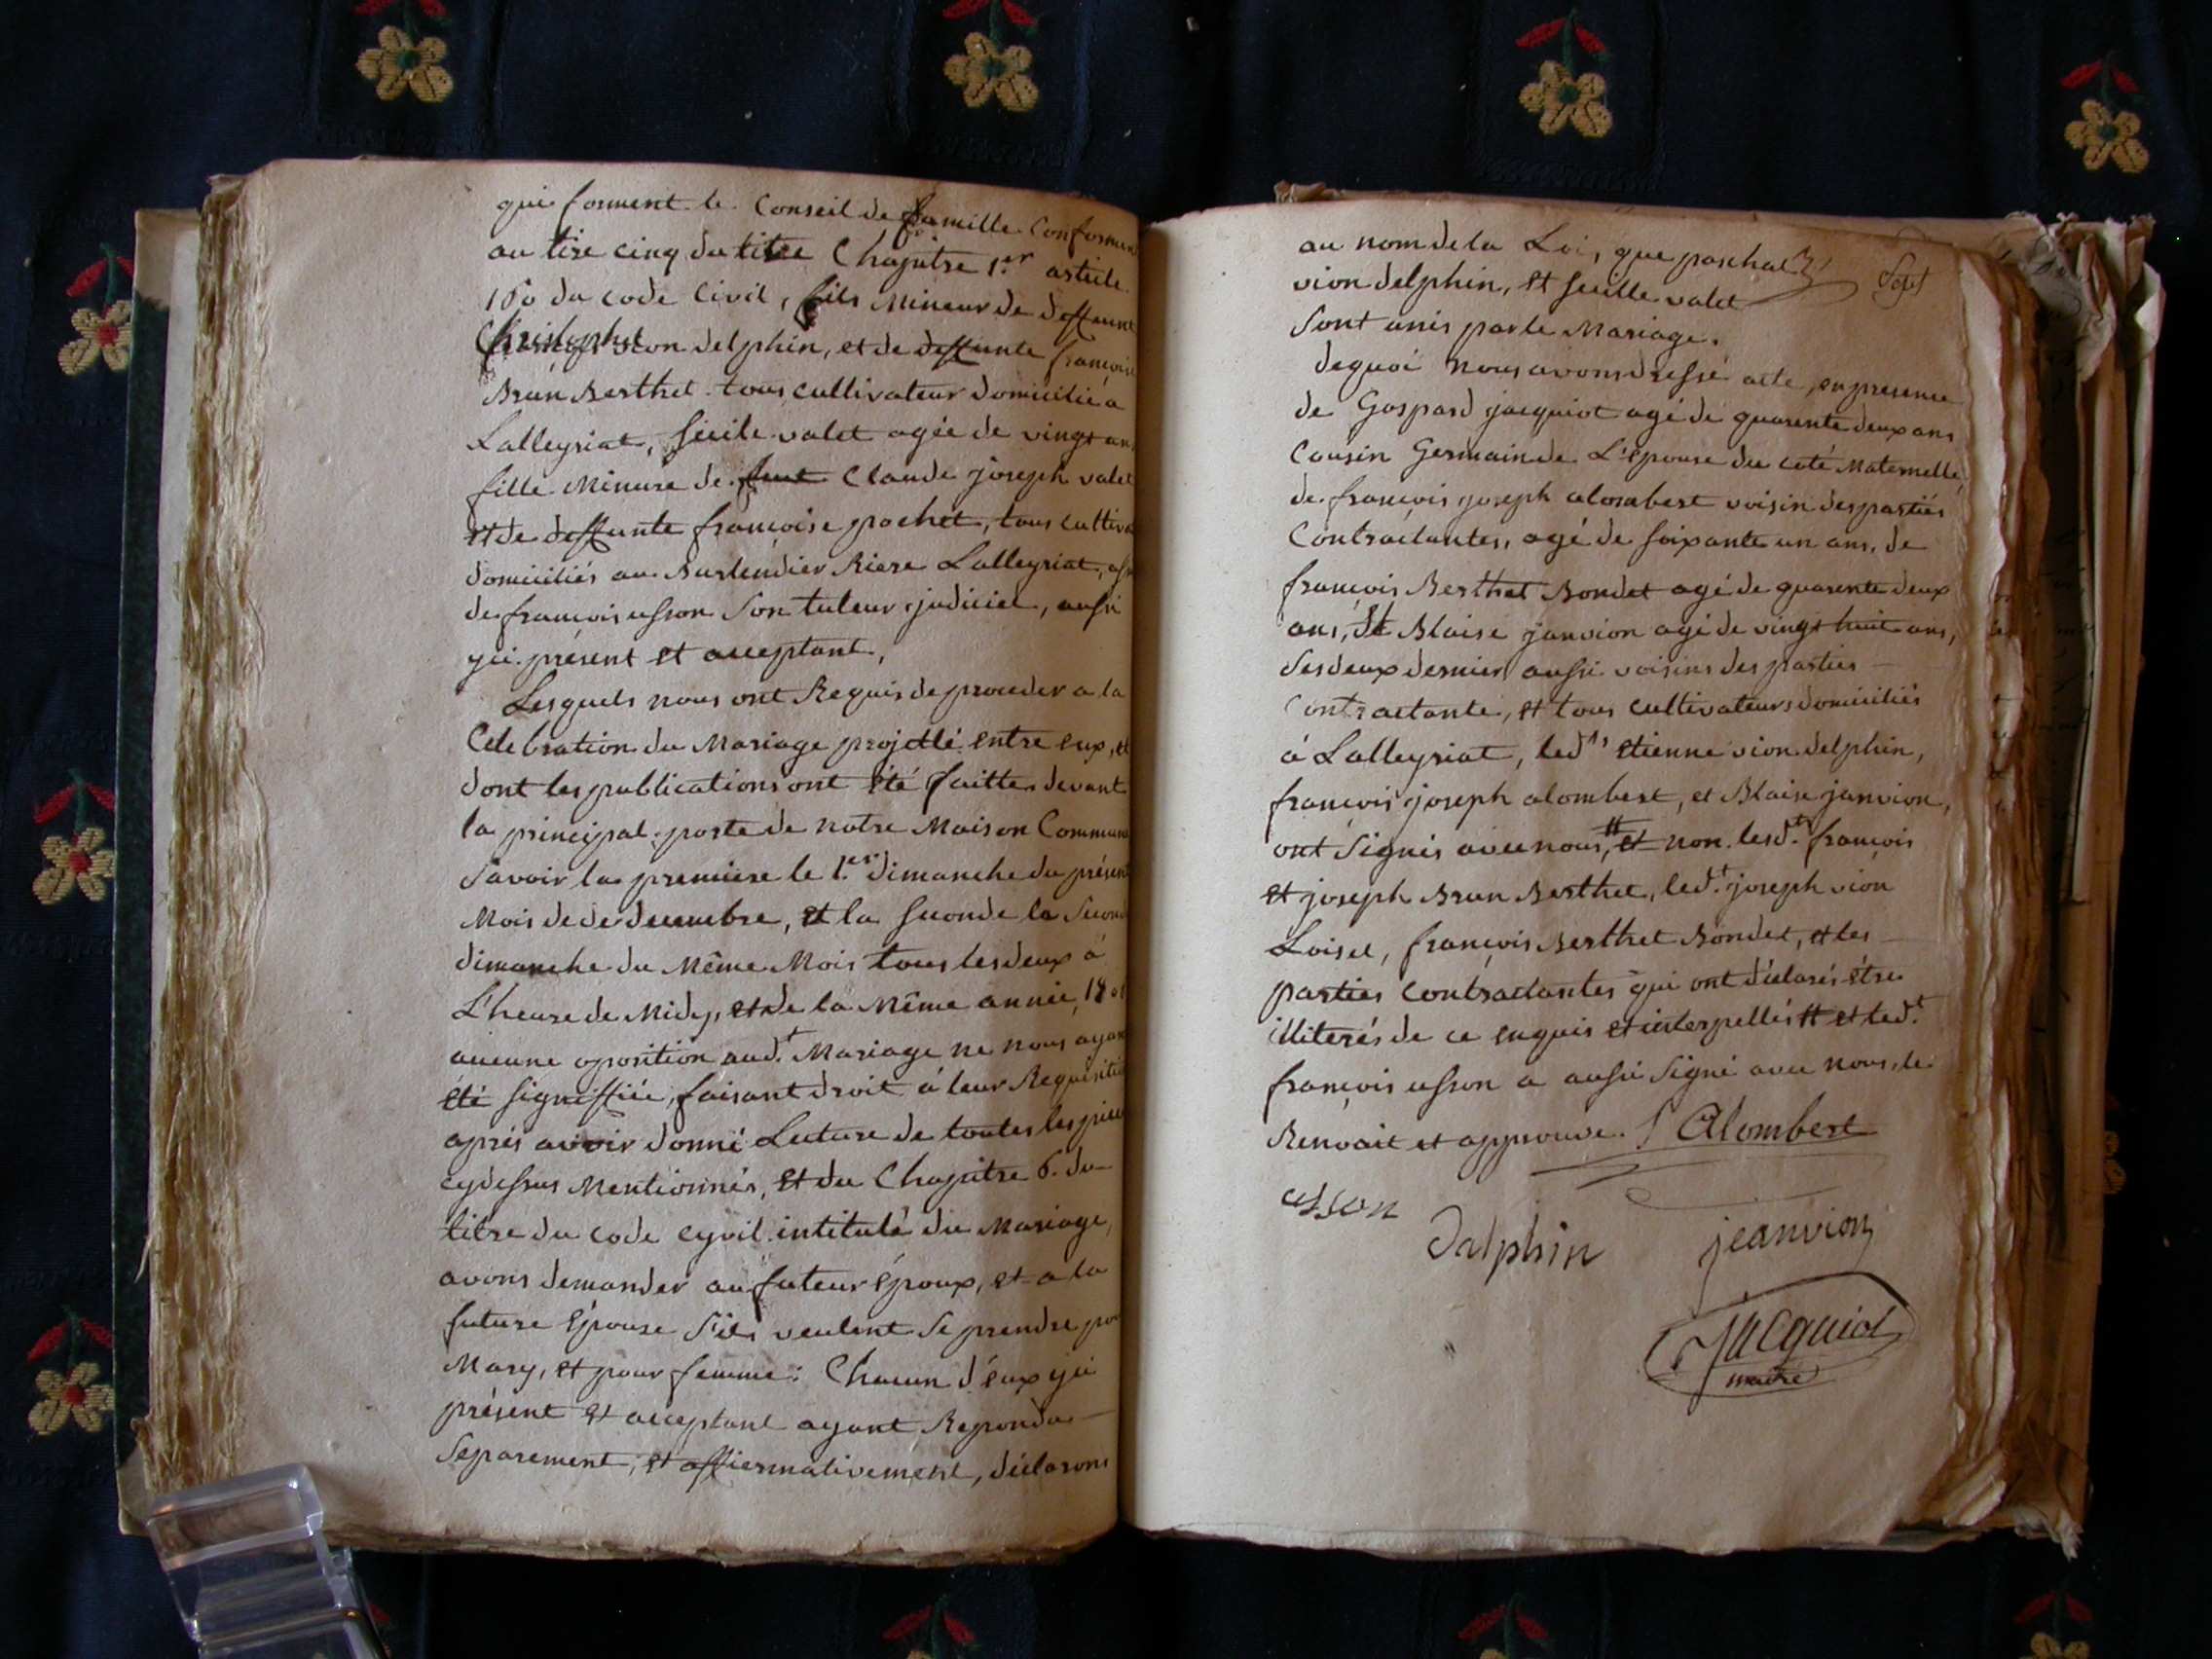 qui forment le Conseil de famille Conformem
au tire cinq du titre Chapitre 1.er article
160 du code Civil, fils Mineur de deffunt
Christophe vion delphin, et de deffunte françoise
Brun Berthet tous cultivateur domicilié a
Lalleyriat, Sicile valet agée de vingt ans
fille Minure de feut Claude joseph valet
et de deffunte françoise pochet, tous cultiva
domiciliés au Burlendier Riere Lalleyriat,
de françois usson Son tuteur judiciel, aussi
yci présent et acceptant,
Lesquels nous ont Requis de proceder a la
Celebration du Mariage projetté entre eux, et
dont les publications ont été faittes devant
la principal porte de notre Maison Commune
Savoir la premiere le 1.er dimanche du présent
Mois de de decembre, et la seconde le Second
dimanche du Même Mois tous les deux à
L'heure de Midy, et de la Même année, 180
aucune oposition aud.t Mariage ne nous ayan
été signiffiée, faisant droit á leur Requisitio
aprés avvoir donné Lecture de toutes les piece
cydessus Mentionnés, et du Chapitre 6. du
titre du code cyvil intitulé du Mariage,
avons demander au futeur Époux, et a la
future Épouse S'ils veulent Se prendre pou
Mary, et pour femme: Chacun d'eux yci
présent et acceptant ayant Repondu
Separement, et affiermativement, déclarons
au nom de la Loi, que paschal
vion delphin, et Secille valet
Sont unis par le Mariage.
dequoi nous avons dressé acte, en presence
de Gaspard jacquiot agé de quarente deux ans
Cousin Germain de L'épouse du coté Maternelle,
de françois joseph alombert voisin des partiés
Contractantes, agé de soixante un ans, de
françois Berthet Bondet agé de quarente deux
ans, Et Blaise janvion agé de vingt huit ans,
Ses deux dernier aussi voisins des parties
Contractante, et tous cultivateurs domiciliés
á Lalleyriat, led.ts etienne vion delphin,
françois joseph alombert, et Blaise janvion,
ont Signés avec nous,# et non lesd.ts françois
et joseph Brun Berthet, led.t joseph vion
Loisel, françois Berthet Bondet, et les
parties contractantes qui ont déclarés étre
illiterés de ce enquis et interpellés # et led.t
françois usson a aussi Signé avec nous, le
Renvoit et approuve. f Alombert
usson
Dalphin jeanvion
Jacquiot
maire